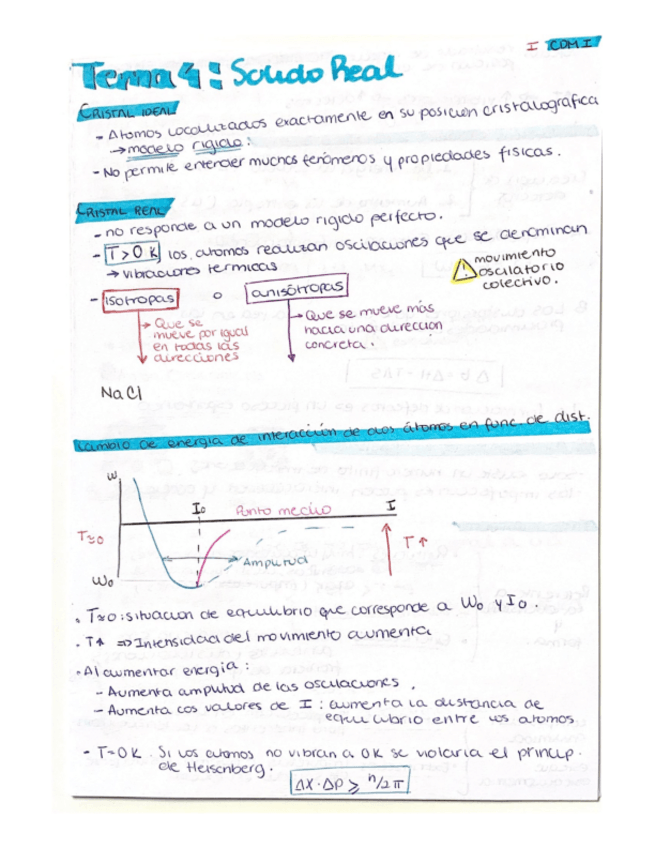 I CDM I
Tema 4: Solido Real
CRISTAL IDEAL
- Atomos localizados exactamente en su posicion cristalografica
→ modelo rigido:
- No permite entender muchos fenómenos y propiedades fisicas.
CRISTAL REAL
- no responde a un modelo rigido perfecto.
- T > O K los atomos realizan oscilaciones que se denominan
→ vibraciones termicas
movimiento
oscilatorio
colectivo.
- isotropas o anisótropas
→ Que se
mueve por igual
en todas las
direcciones
→ Que se mueve más
hacia una direccion
concreta.
NaCl
Cambio de energia de interacción de dos átomos en func. de dist.
W
Io Punto medio I
T≈0
T↑
Amplitud
Wo
. T≈0: situacion de equilibrio que corresponde a Wo y Io.
. T↑ ⇒ Intensidad del movimiento aumenta
· Al aumentar energia:
- Aumenta amplitud de las oscilaciones.
- Aumenta los valores de I: aumenta la distancia de
equilibrio entre los atomos
- T=0K. Si los atomos no vibran a 0K se violaria el princip.
de Heisenberg.
ΔX·ΔP ⩾ h/2π